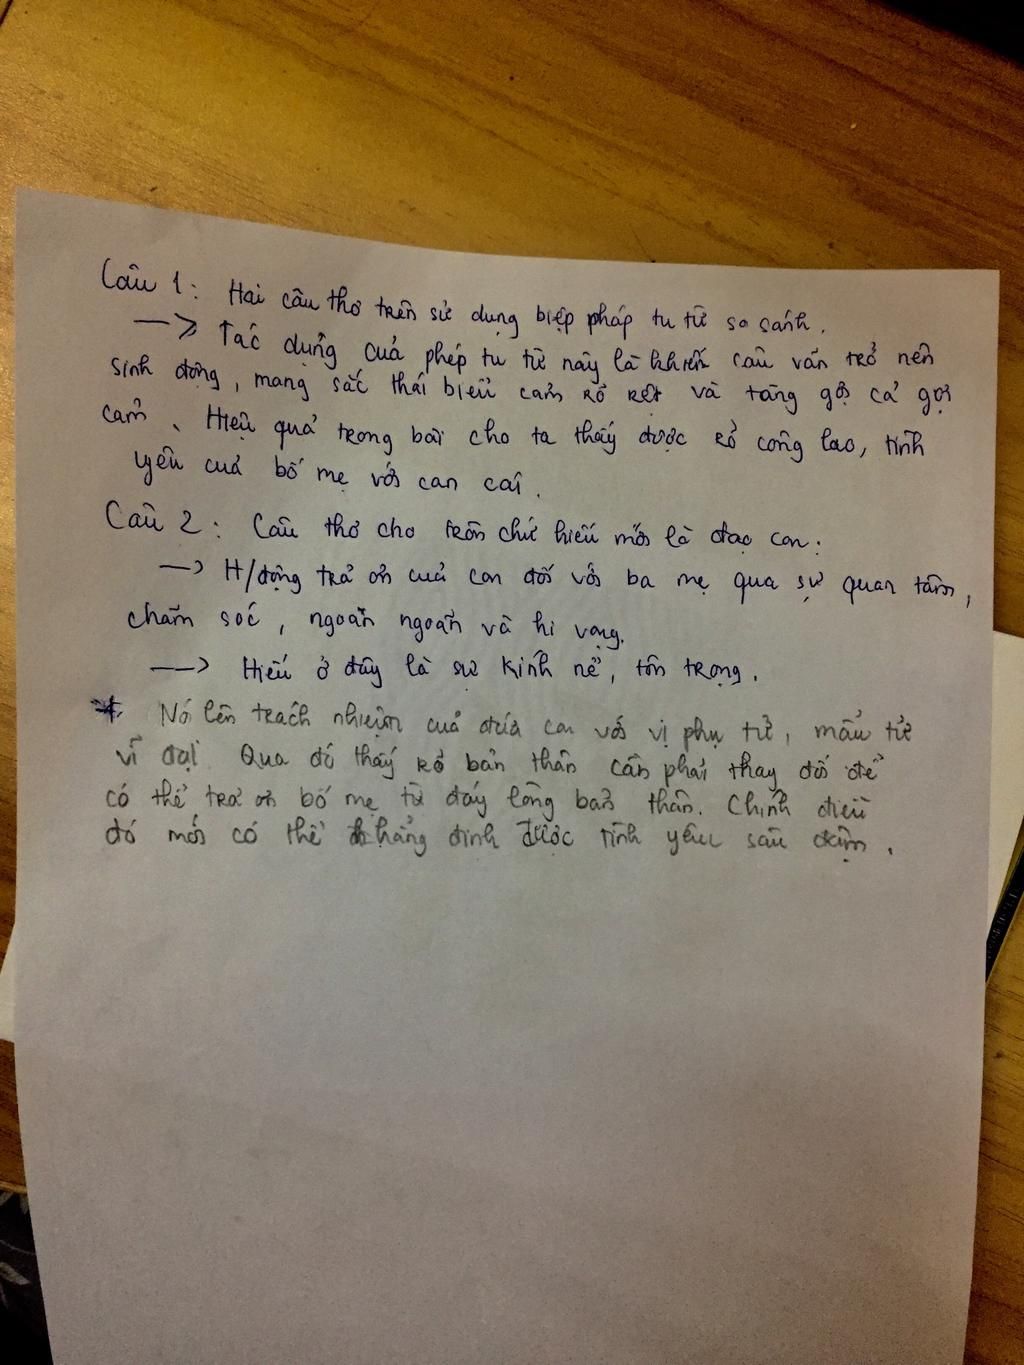 Câu 1: Hai câu thơ trên sử dụng biệp pháp tu từ so sánh.
—> Tác dụng của phép tu từ này là khiến câu văn trở nên
sinh động, mang sắc thái biểu cảm rõ rệt và tăng gợi cả gợi
cảm. Hiệu quả trong bài cho ta thấy được rõ công lao, tình
yêu của bố mẹ với con cái.
Câu 2: Câu thơ cho tròn chữ hiếu mới là đạo con:
—> H/động trả ơn của con đối với ba mẹ qua sự quan tâm,
chăm sóc, ngoan ngoãn và hi vọng.
—> Hiếu ở đây là sự kính nể, tôn trọng.
* Nói lên trách nhiệm của đứa con với vị phụ tử, mẫu tử
vĩ đại. Qua đó thấy rõ bản thân cần phải thay đổi để
có thể trả ơn bố mẹ từ đáy lòng bản thân. Chính điều
đó mới có thể khẳng định được tình yêu sâu đậm.